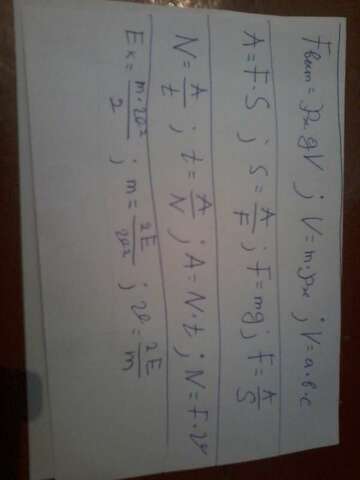 Fвит = ρж g V ; V = m : ρж ; V = a · в · c
A = F · S ; S = A/F ; F = mg ; F = A/S
N = A/t ; t = A/N ; A = N · t ; N = F · υ
Eк = m · υ²/2 ; m = 2E/υ² ; υ = 2E/m